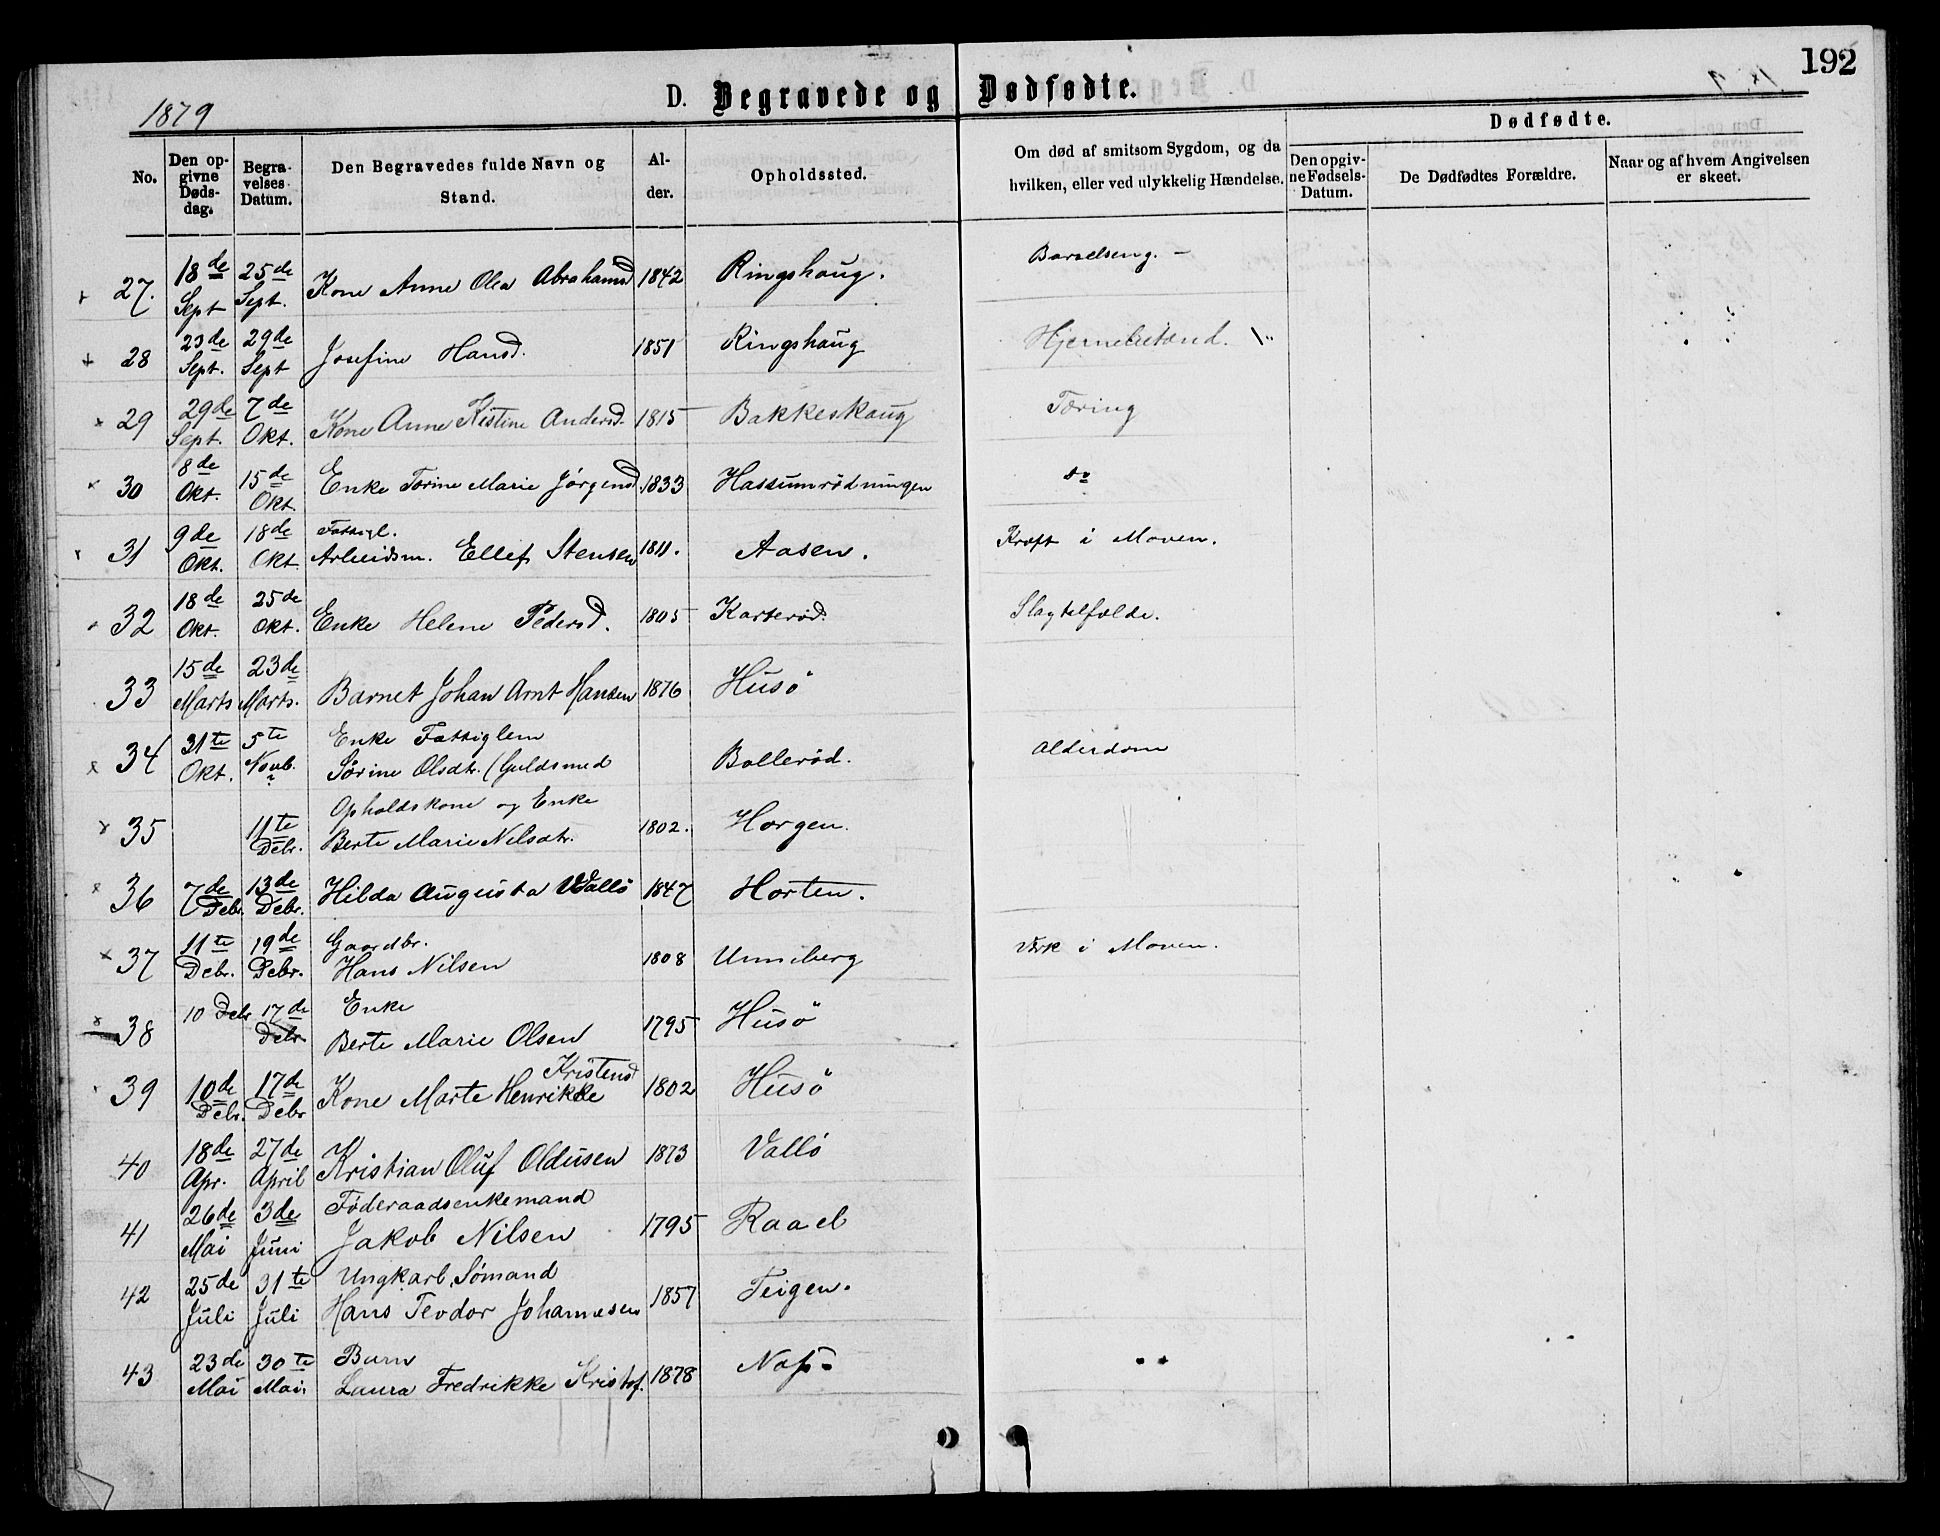 192
1879
D. Begravede og Dødfødte.
No.
Den opgivne Dødsdag.
Begravelses Datum.
Den Begravedes fulde Navn og Stand.
Alder.
Opholdssted.
Om død af smitsom Sygdom, og da hvilken, eller ved ulykkelig Hændelse.
Dødfødte.
Den opgivne Fødsels-Datum.
De Dødfødtes Forældre.
Naar og af hvem Angivelsen er skeet.
27. 18de Sept 25de Sept. Kone Anne Olea Abrahamsd 1842 Ringshaug. Barselseng. -
28 23de Sept. 29de Sept Josefine Hansd. 1851 Ringshaug Hjernebetænd.
29 29de Sept. 7de Okt. Kone Anne Kistine Andersd. 1815 Bakkeskaug Tæring
30 8de Okt. 15de Okt. Enke Torine Marie Jørgensd 1833 Hassumrødningen do
31 9de Okt. 18de Okt. Fattigl. Arbeidsm. Ellef Stensen 1811. Aasen. Kræft i Maven.
32 18de Okt. 25de Okt. Enke Helene Pedersd. 1805 Karterød. Slagtilfælde.
33 15de Marts 23de Marts. Barnet Johan Arnt Hansen 1876 Husö
34 31te Okt. 5te Novb. Enke Fattiglem Sørine Olsdtr. (Guldsmed Bollerød. Alderdom
35 11te Debr. Opholdskone og Enke Berte Marie Nilsdtr. 1802. Horgen.
36 7de Debr. 13de Debr. Hilda Augusta Wallö 1847 Horten.
37 11te Debr. 19de Debr. Gaardbr. Hans Nilsen 1808 Unneberg Værk i Maven.
38 10 Debr 17de Debr. Enke Berte Marie Olsen 1795 Husö
39 10de Debr. 17de Debr Kone Marte Henrikke Kristensd 1802 Husö
40 18de Apr. 27de April Kristian Oluf Oldusen 1873 Vallö
41 26de Mai 3de Juni Føderaadsenkemand Jakob Nilsen 1795 Raael
42 25de Juli 31te Juli Ungkarl, Sømand Hans Teodor Johannesen 1857 Teigen.
43 23de Mai 30te Mai. Barn Laura Fredrikke Kristof. 1878